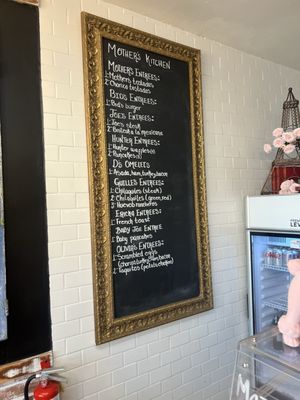 Mother's Kitchen
Mother's Entrees:
1. Mother's toladas
2. Chorico toladas
Bid's Entrees:
1. Bud's burger
Joe's Entrees:
1. Joe's steak
2. a la mexicana
Hunter Entrees:
1. Hunter waffles
2. Pancakes
D's Omelets
1. Avocado, ham, turkey, bacon
Guelle's Entrees:
1. Chilaquiles (steak)
2. Chilaquiles (green, red)
3. Huevos rancheros
Ericka Entrees:
1. French toast
Baby Joe Entree
1. Baby pancakes
Olivia's Entrees:
1. Scrambled eggs
(chorizo, turkey, ham, bacon
2. Taquitos (potato, chicken)
LEV
M